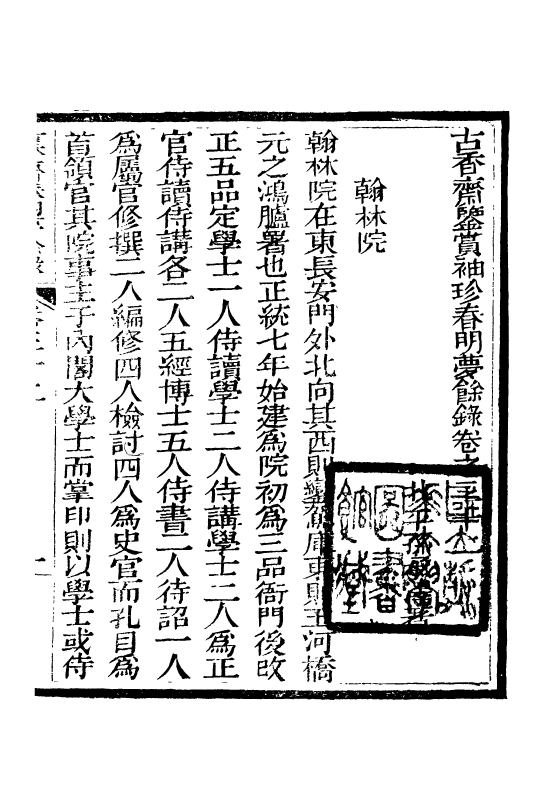 古香齋鑒賞袖珍春明夢餘錄卷之三十二
翰林院
翰林院在東長安門外北向其西則鑾駕庫東則玉河橋
元之鴻臚署也正統七年始建爲院初爲三品衙門後改
正五品定學士一人侍讀學士二人侍講學士二人爲正
官侍讀侍講各二人五經博士五人侍書二人待詔一人
爲屬官修撰三人編修四人檢討四人爲史官而孔目爲
首領官其院事主于內閣大學士而掌印則以學士或侍